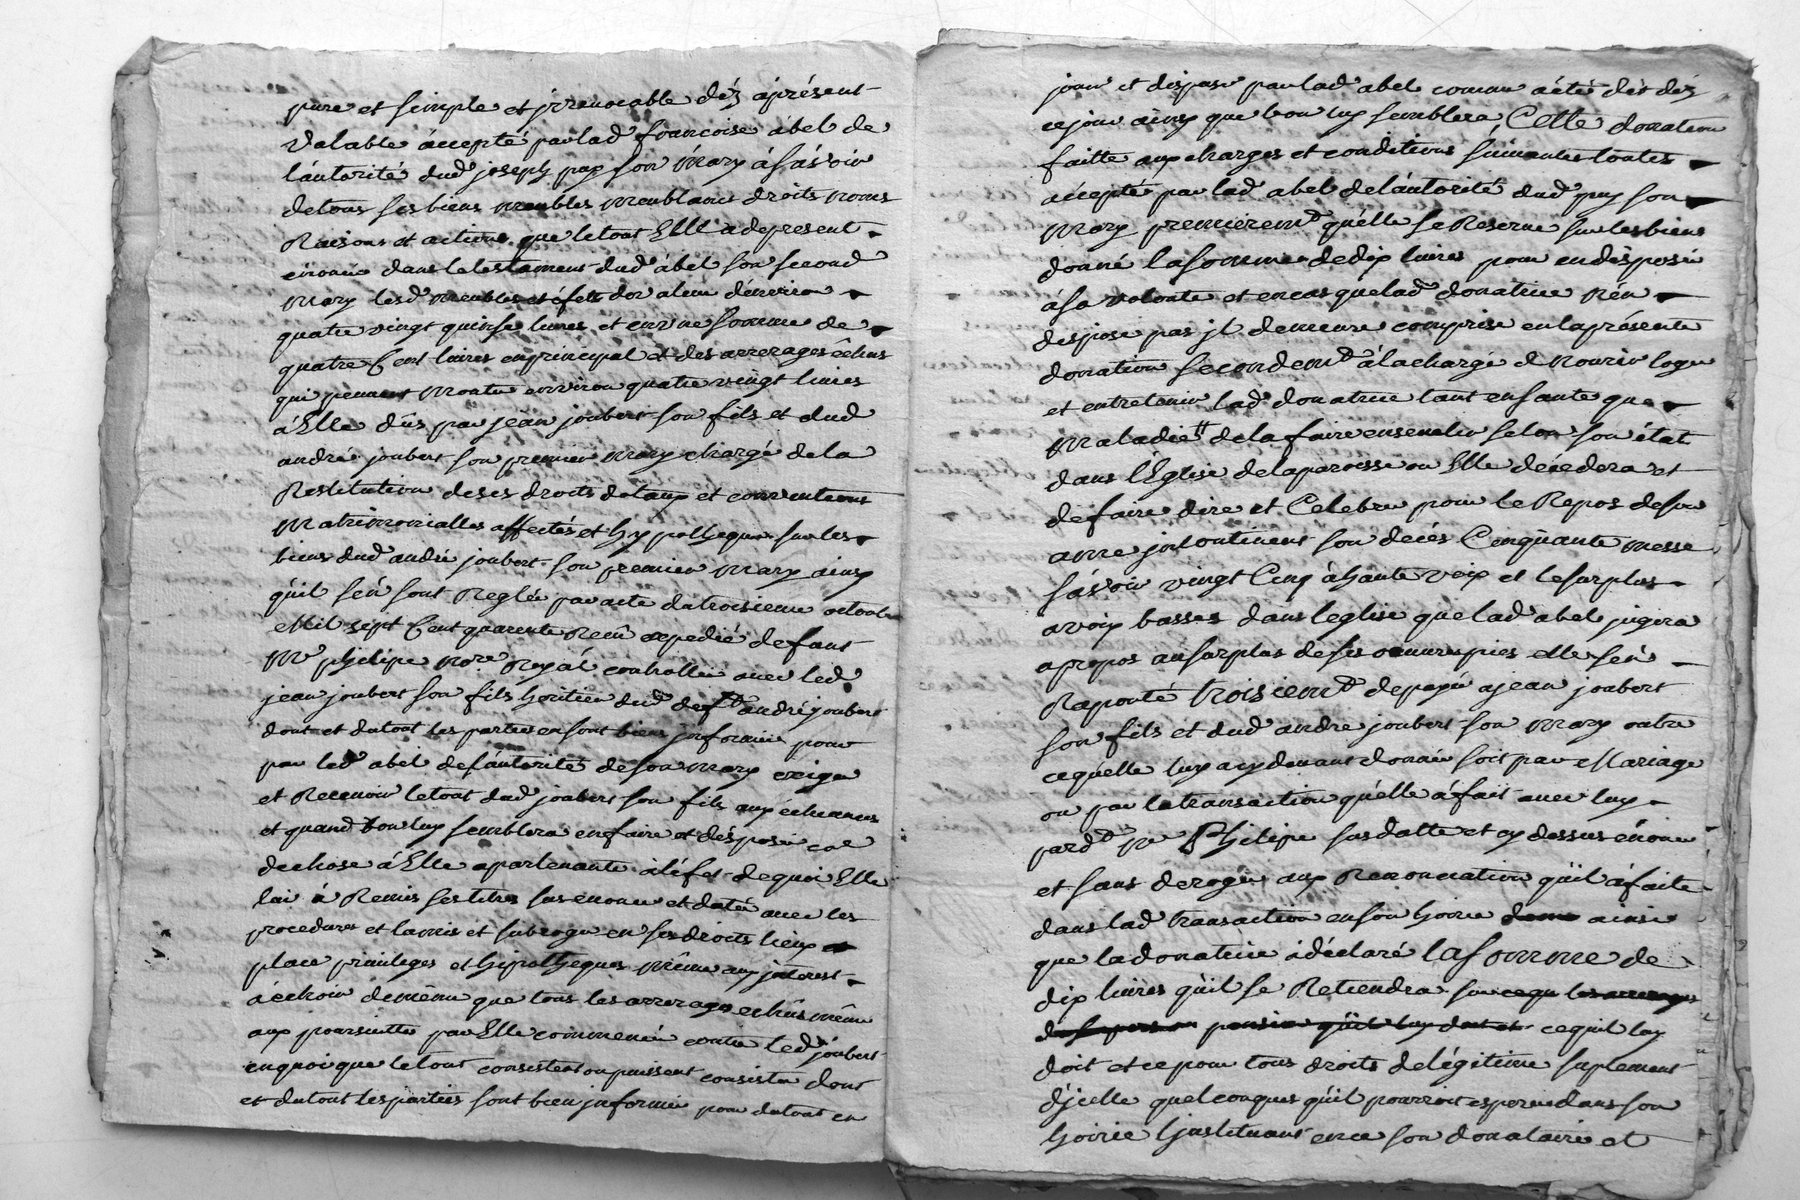 pure et simple et jrrevocable dés áprésent
Valable áccepté par lad francoise ábel de
lautorité dud joseph puy son Mary ásávoir
detous ses biens meubles meublants droits noms
Raisons et actions que letout Elle adepresent
enoncée dans letestament dud ábel son second
mary lesd meubles et éfets dor aleur dénviron
quatre vingt quinse livres et en une somme de
quatre Cent livres enprincipal et des arrerages échus
qui peuvent monter environ quatre vingt livres
áElle dûs par jean joubert son fils et dud
andré joubert son premier mary chargé dela
Restitution deses droits dotaux et conventions
Matrimonialles affectés et hypothequés sur les
biens dud andré joubert son premier mary ainsy
quil sén sont Reglée par acte du troisieme octobre
Mil sept Cent quarente Neuf expedié defant
Me philipe nore Royál controllée avec led
jean joubert son fils héritier dud deft andré joubert
dont et dutout les parties en sont bien jnformée pour
par led abel delautorité de son mary exiger
et Recevoir letout dud joubert son fils aux échances
et quand bon luy semblera enfaire et désposer coe
dechose áElle apartenante áléfet dequoi Elle
lui á Remis ses titres susenoncé et datée avec les
procedures et lamis et subrogé en ses droits lieux et
place privileges et hipotheques même aux jnterest
áéchoir deméme que tous les arrerages echûs même
aux poursuittes par Elle commencée contre led joubert
enquoi que letout consistent ou puissent consister dont
et dutout les parties sont bien jnformée pour dutout en
jouir et disposer par lad abel comme áété dit dés
cejour ainsy que bon luy semblera Cette donation
faitte aux charges et conditions suivantes toutes
accepté par lad abel delautorité dud puy son
Mary premieremt quélle se Reserve sur les biens
donné lasomme dedix livres pour endésposer
ása volonte et encas quelad donatrice nén
despose pas jl demeure comprise enlaprésente
donation secondemt álachargé d nourir loger
et entretenir lad donatrice tant ensante que
Maladie delafaire ensevelir selon son état
dans lÉglise delaparoisse ou Elle décedera et
defaire dire et Celebrer pour le Repos deson
ame jncontinent son décés Cinquante messe
sávoir vingt Cinq áhaute voix et lesurplus
avoix basses dans leglise quelad abel jugera
apropos ausurplus deses oeuvres pies elle sén
Raporté troisiemt depayer ajean joubert
son fils et dud andre joubert son mary outre
cequélle luy a cy devant donnée soit par Mariage
ou par latransaction quélle áfait avec luy
pardt me Philipe sus datte et cy dessus énoncé
et sans deroger aux Renonciation quil áfaite
dans lad transaction enson hoirie ainsi
que ladonatrice ádéclaré lasomme de
dix livres quil se Retiendra sur cequ les arrerages
de sa pension pension quil luy doit et cequil luy
doit et cepour tous droits delégitime suplement
djcelle quelconques quil pourroit esperer dans son
hoirie ljnstituant ence son donataire et